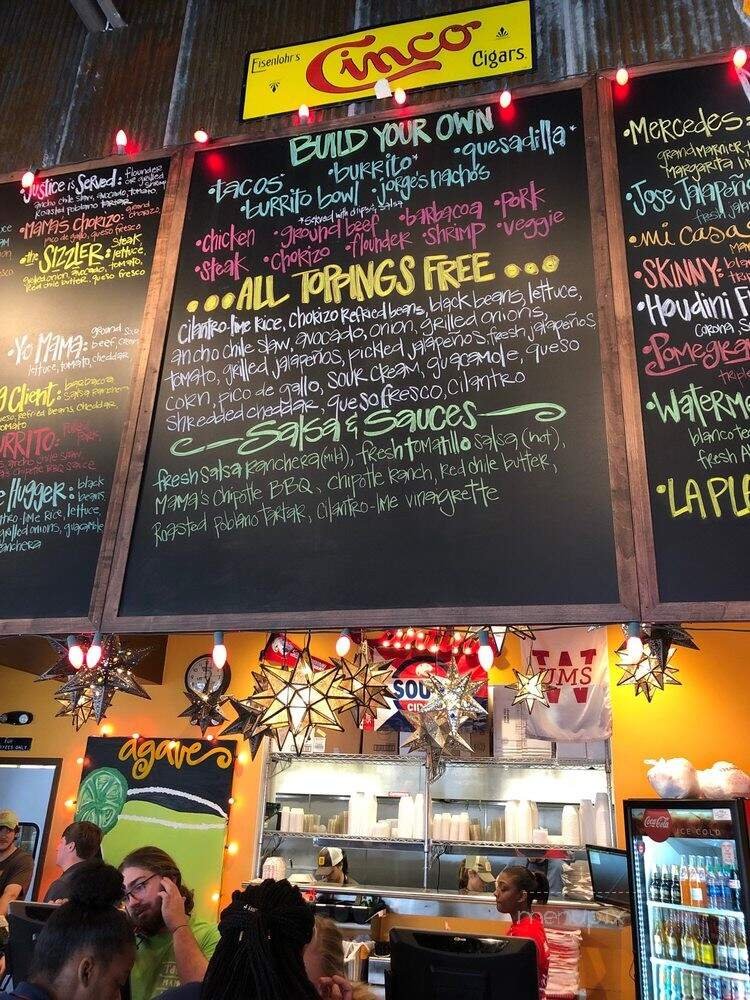 Eisenlohr's
Cinco
Cigars.
Justice is Served: flounder
or grilled shrimp
ancho chile slaw, avocado, tomato
Roasted poblano tartar
Mamas Chorizo: ground chorizo,
pico de gallo, queso fresco
the SIZZLER: steak
grilled onion, avocado, tomato, lettuce,
Red chile butter, queso fresco
Yo Mama: ground
beef,
lettuce, tomato, cheddar
Client: barbacoa
salsa ranchera
queso, refried beans cheddar,
Pork,
ancho chile slaw,
chipotle BBQ sauce
Hugger: black beans,
cilantro-lime rice, lettuce,
grilled onions, guacamole
BUILD YOUR OWN
•tacos •burrito* •quesadilla*
•burrito bowl •jorge's nachos
*served with chips & salsa
•chicken •ground beef •barbacoa •pork
•steak •chorizo •flounder •shrimp •veggie
...ALL TOPPINGS FREE...
cilantro-lime rice, chorizo refried beans, black beans, lettuce,
ancho chile slaw, avocado, onion, grilled onions,
tomato, grilled jalapeños, pickled jalapeños, fresh jalapeños
corn, pico de gallo, sour cream, guacamole, queso
shredded cheddar, queso fresco, cilantro
Salsa & Sauces
fresh Salsa Ranchera (mild), fresh tomatillo salsa (hot),
Mama's Chipotle BBQ, Chipotle Ranch, Red chile butter,
Roasted poblano tartar, cilantro-lime vinaigrette
•Mercedes:
grand marnier
margarita
•Jose Jalapeño
fresh
•mi casa
•SKINNY:
•Houdini
corona,
•Pomegra
triple
•Waterme
blanco te
fresh
•LA PL
agave
SOU
W
JMS
Coca-Cola
ICE COLD
menupix